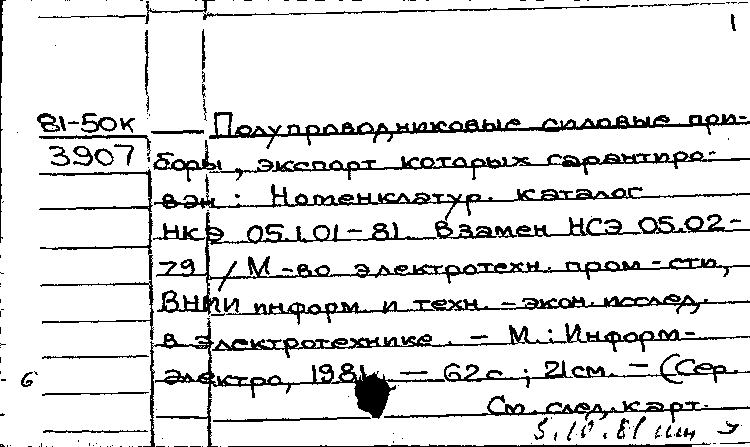 1
81-50к
3907
— Полупроводниковые силовые при-
боры, экспорт которых гарантиро-
ван: Номенклатур. каталог
НКЭ 05.1.01-81. Взамен НСЭ 05.02-
79 / М-во электротехн. пром-сти,
ВНИИ информ. и техн.-экон. исслед.
в электротехнике. — М.: Информ-
электро, 1981. — 62с.; 21см. — (Сер.
См. след. карт.
6
5.10.81